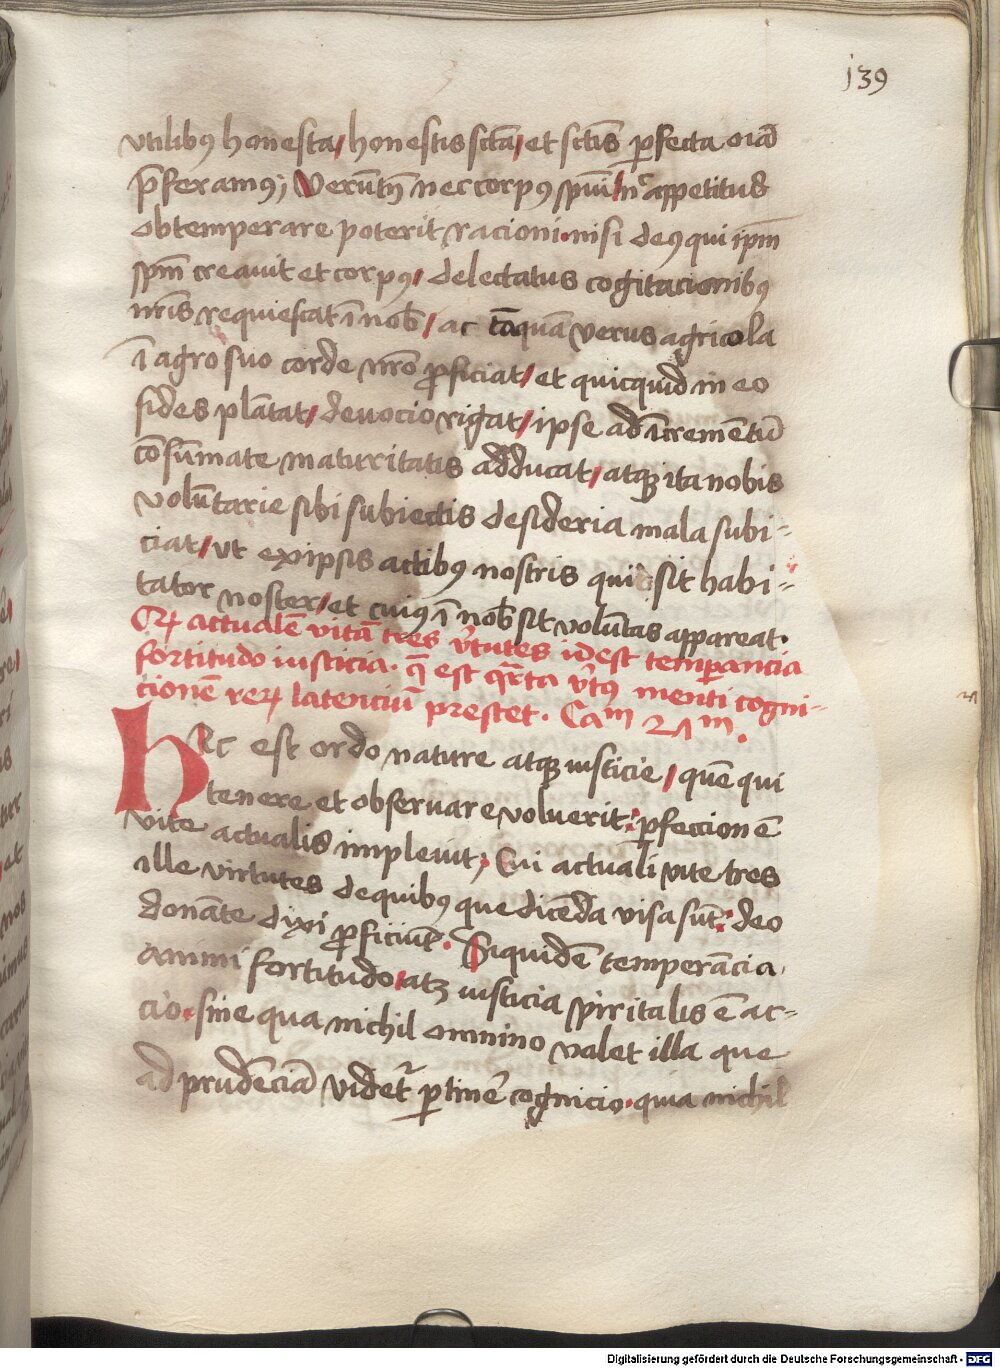 139
vtilibꝰ honesta / honestis sctā / et sctīs ꝑfecta oīa
p̄feramꝰ ; Verūtn̄ nec corpꝰ spūi / nͨ appetitus
obtemperare poterit racioni · nisi deꝰ qui ip̄m
sp̄m creauit et corpꝰ / delectatus cogitacionibꝰ
nr̄is requiescat ī nob̄ / ac tāquā verus agricola
ī agro suo corde nr̄o ꝓficiat / et quicquid in eo
fides plātat / deuocio rigat / ipse ad īcremētū
cōsūmate maturitatis adducat / atqꝫ ita nobis
volūtarie sibi subiectis desideria mala subi-
ciat / vt ex ipsis actibꝰ nostris quis sit habi-
tator noster / et cuiꝰ ī nob̄ sit volūtas appareat ·
Qꝛ actualē vitā tres v̄tutes idest temperancia
fortitudo iusticia · q̄ est q̄rta v̄tꝰ menti cogni-
cionē reꝝ latenciū prestet · Caᵐ 21ᵐ .
Hec est ordo nature atqꝫ iusticie / quē qui
tenere et obseruare voluerit : ꝑfeccionē
vite actualis impleuit ; Cui actuali vite tres
ille virtutes de quibꝰ que dicēda visa sūt : deo
donāte dixi ꝓficiūt . Siquidē temperācia
animi fortitudo / atqꝫ iusticia spiritalis ē ac-
cio · sine qua nichil omnino valet illa que
ad prudēciā videtʳ ꝑtinē cognicio · quia nichil
Digitalisierung gefördert durch die Deutsche Forschungsgemeinschaft - DFG